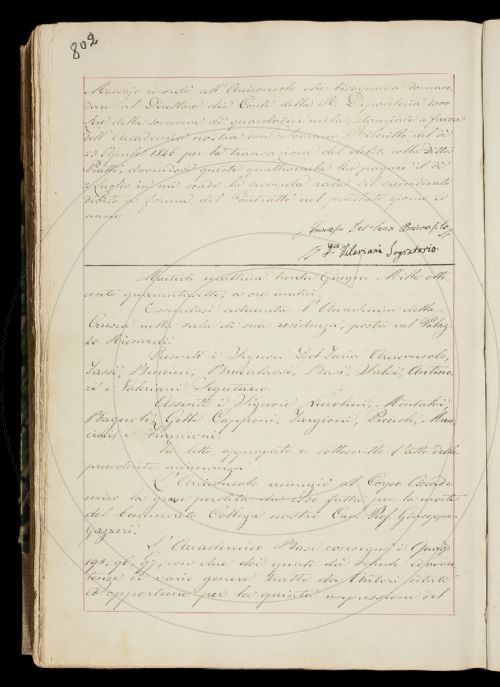 802
Massajo ricordò all'Arciconsolo che bisognava doman-
dare al Direttore dei Conti della R. Depositeria 4000
lire della somma di quarantotto mila, stanziate a favore
dell'Accademia nostra con Sovrano Rescritto del dì
23 Agosto 1846 per la transazione del debito colla Ditta
Piatti, dovendosi queste quattromila lire pagare il dì
Luglio in cui scade la seconda rata del suindicato
debito a forma del Contratto nel giorno ed
anno
Francesco Del Furia Arciconsolo
D. Valeriani Segretario
Martedì mattina trenta Giugno Mille otto-
cento quarantasette, a ore undici.
Essendosi adunata l'Accademia della
Crusca nella sala di sua residenza, posta nel Palaz-
zo Riccardi:
Presenti i Signori Del Furia Arciconsolo,
Tassi, Bencini, Brunacci, Basi, Salvi, Antino-
ri e Valeriani Segretario.
Assenti i Signori Niccolini, Montalvi
Bagnoli, Gelli, Capponi, Targioni, Puccioli, Man-
e Francioni.
Fu letto, approvato e sottoscritto l'atto della
precedente adunanza.
L'Arciconsolo annunziò al Corpo Accade-
mico la grave perdita da esso fatta per la morte
del benemerito Collega nostro Cav. Prof. Giuseppe
Gazzeri.
L'Accademico Basi consegnò i Quad.
195, 96, 97, con due dei quali di schede
di vario genere tratti da Autori citati
ed opportune per la quinta impressione del